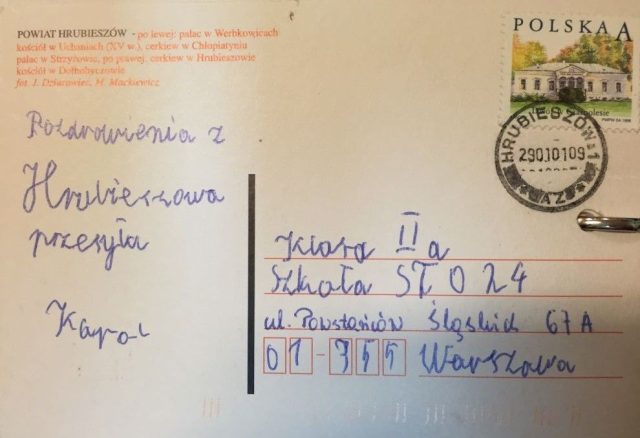 POWIAT HRUBIESZÓW - po lewej: pałac w Werbkowicach
kościół w Uchaniach (XV w.), cerkiew w Chłopiatyniu
pałac w Strzyżowie, po prawej: cerkiew w Hrubieszowie
kościół w Dołhobyczowie
fot. J. Dziurowiec, M. Mackiewicz
POLSKA A
HRUBIESZÓW 1
29010109
Pozdrowienia z
Hrubieszowa
przesyła
Karol
Klasa II a
Szkoła STO 24
ul. Powstańców Śląskich 67A
01-355 Warszawa